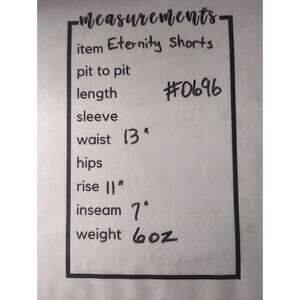 measurements
item Eternity Shorts
pit to pit
length #F0696
sleeve
waist 13"
hips
rise 11"
inseam 7"
weight 6oz